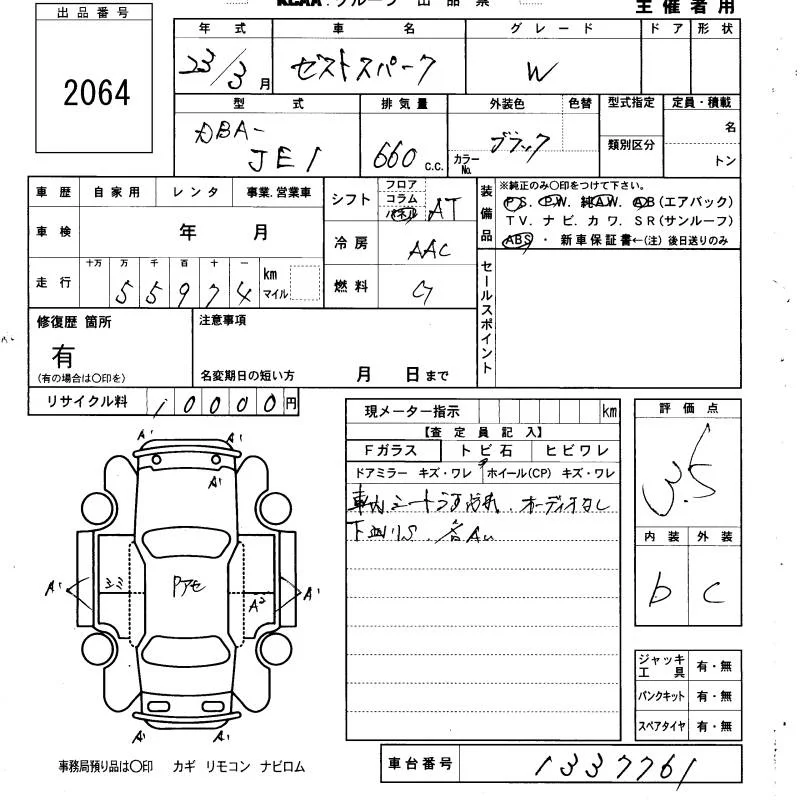 KCAA グループ 出 品 票
主 催 者 用
出 品 番 号
2064
年 式 車 名 グ レ ー ド ド ア 形 状
23/3 月 ゼストスパーク W
型 式 排 気 量 外装色 色替 型式指定 定員・積載
DBA-
JE1 660 c.c. カラーNo. ブラック 類別区分 名
トン
車 歴 自 家 用 レ ン タ 事業.営業車
車 検 年 月
走 行 十万 万 千 百 十 一 km
5 5 9 7 4 マイル
シフト フロア コラム パネル AT
冷 房 AAC
燃 料 G
装備品 ※純正のみ〇印をつけて下さい。
P.S. P.W. 純A.W. A.B(エアバック)
T V. ナ ビ. カ ワ. S R(サンルーフ)
ABS ・ 新 車 保 証 書←(注) 後日送りのみ
セールスポイント
修復歴 箇所 注意事項
有
(有の場合は〇印を) 名変期日の短い方 月 日 まで
リサイクル料 1 0 0 0 0 円
現メーター指示 km
【査 定 員 記 入】
Fガラス ト ビ 石 ヒ ビ ワ レ
ドアミラー キズ・ワレ ホイール(CP) キズ・ワレ
車内シートうす汚れ、オーディオなし
下廻りS
評 価 点
3.5
内 装 外 装
b c
A' A'
A'
A' シミ Pアセ A2 A'
A' A'
ジャッキ工具 有・無
パンクキット 有・無
スペアタイヤ 有・無
事務局預り品は〇印 カギ リモコン ナビロム
車台番号 1337761